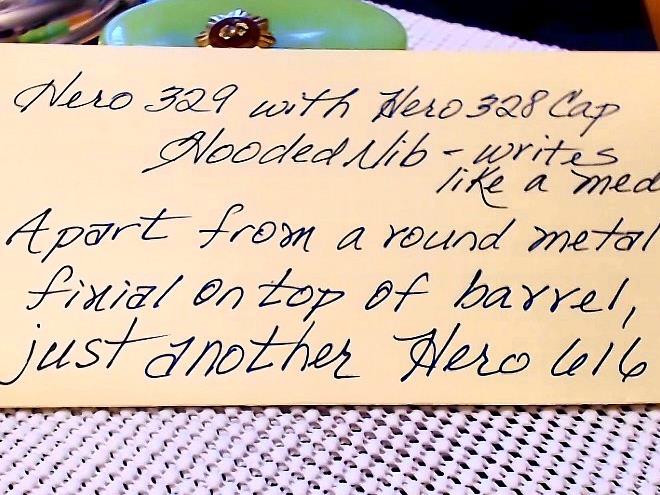 Hero 329 with Hero 328 Cap
Hooded Nib - writes
like a med
Apart from a round metal
finial on top of barrel,
just another Hero 616